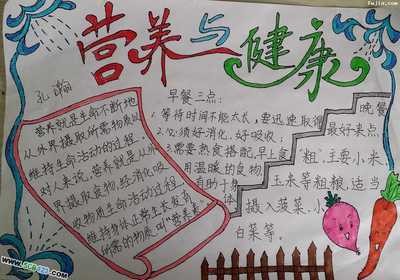 营养与健康
孔瀚
营养就是生命不断地
从外界摄取所需物质以
维持生命活动的过程，
对人来说，营养就是从外
界摄取食物，经消化吸
收物质生命活动的过程，
维持身体正常生长发育
所需的物质，叫“营养素”
早餐三点：
1.等待时间不能太长，需迅速取得
2.必须好消化，好吸收；
3.需要熟食搭配，早上食
用温暖的食物
有助于身
体
晚餐
最好来点
“粗”，主要小米，
玉米等粗粮，适当
摄入菠菜，小
白菜等。
fwjia.com